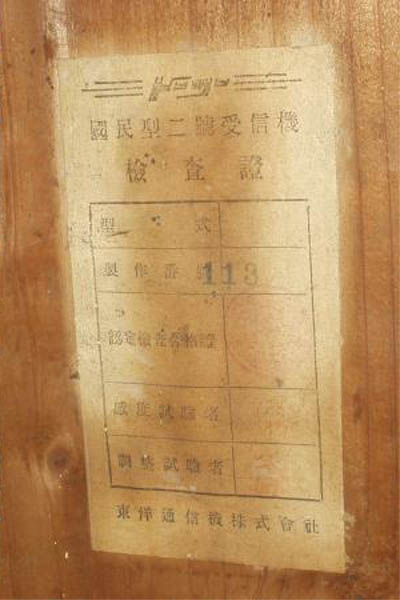 國民型二號受信機
檢查證
型式
製作番號 113
認定檢查合格證
感度試驗者
調整試驗者
東洋通信機株式會社